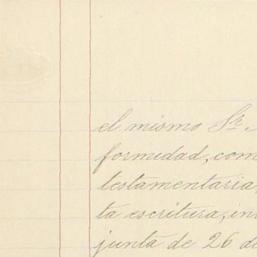 el mismo Sr.
formidad, com
testamentaria,
ta escritura, in
junta de 26 de